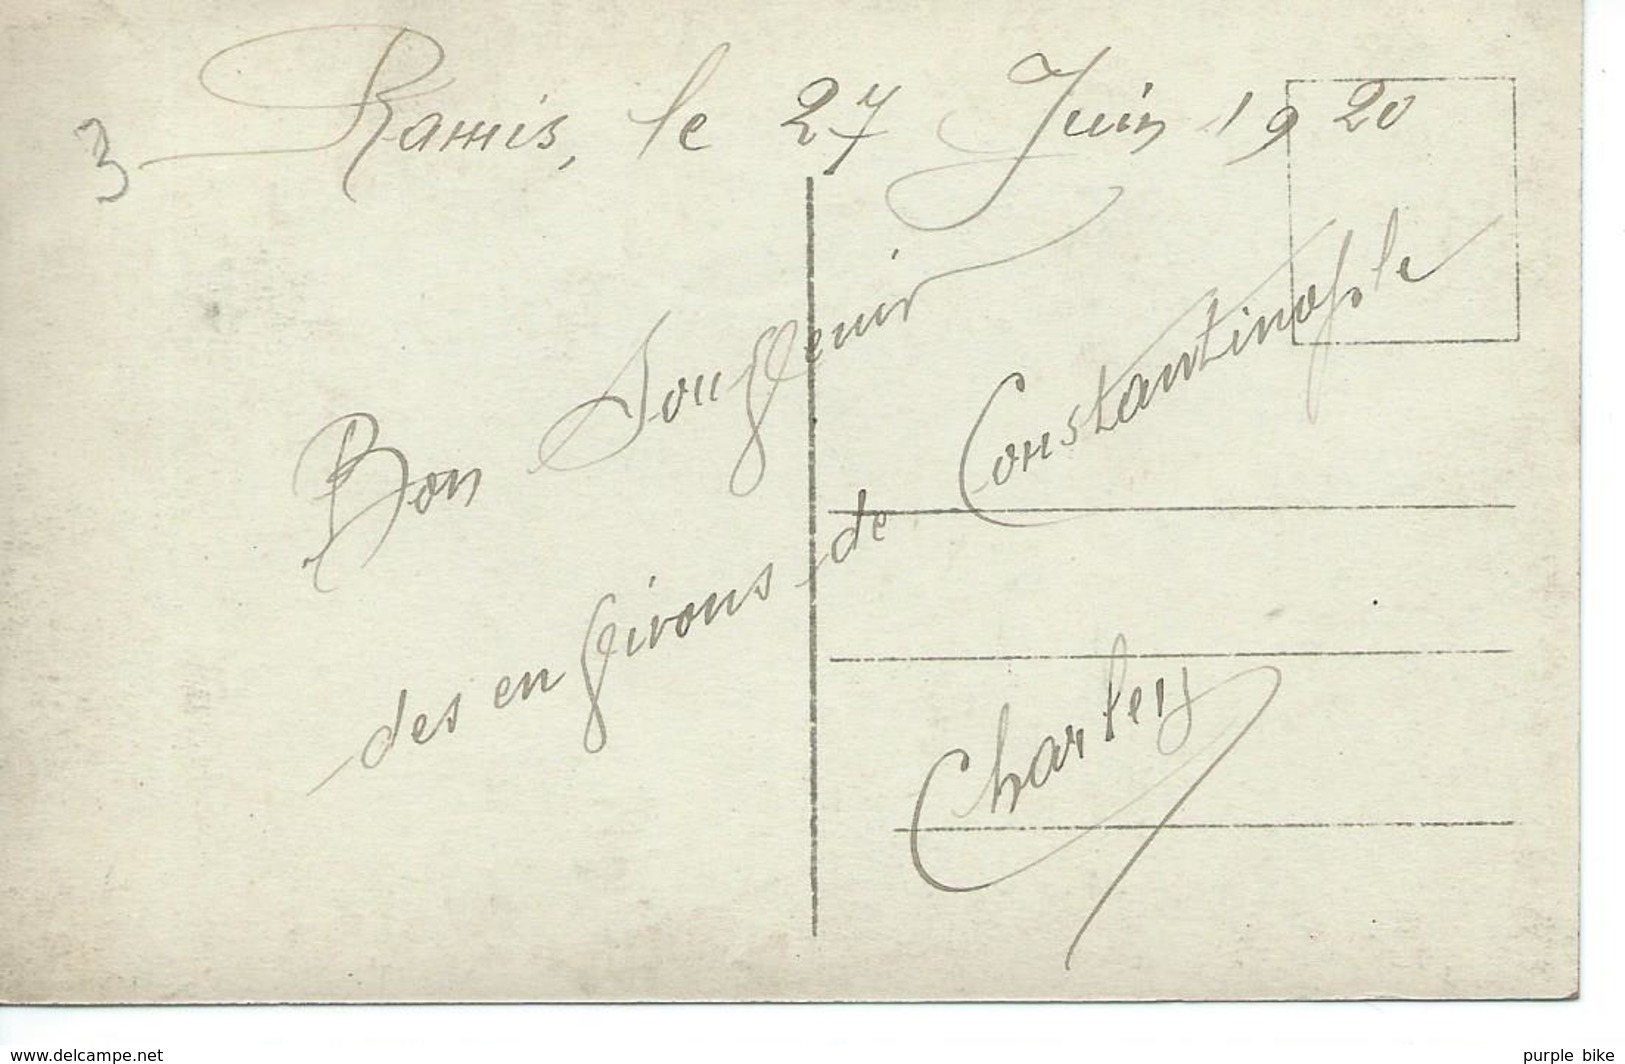 3
Ramis, le 27 Juin 1920
Bon Souvenir
des environs de Constantinople
Charley
www.delcampe.net
purple bike